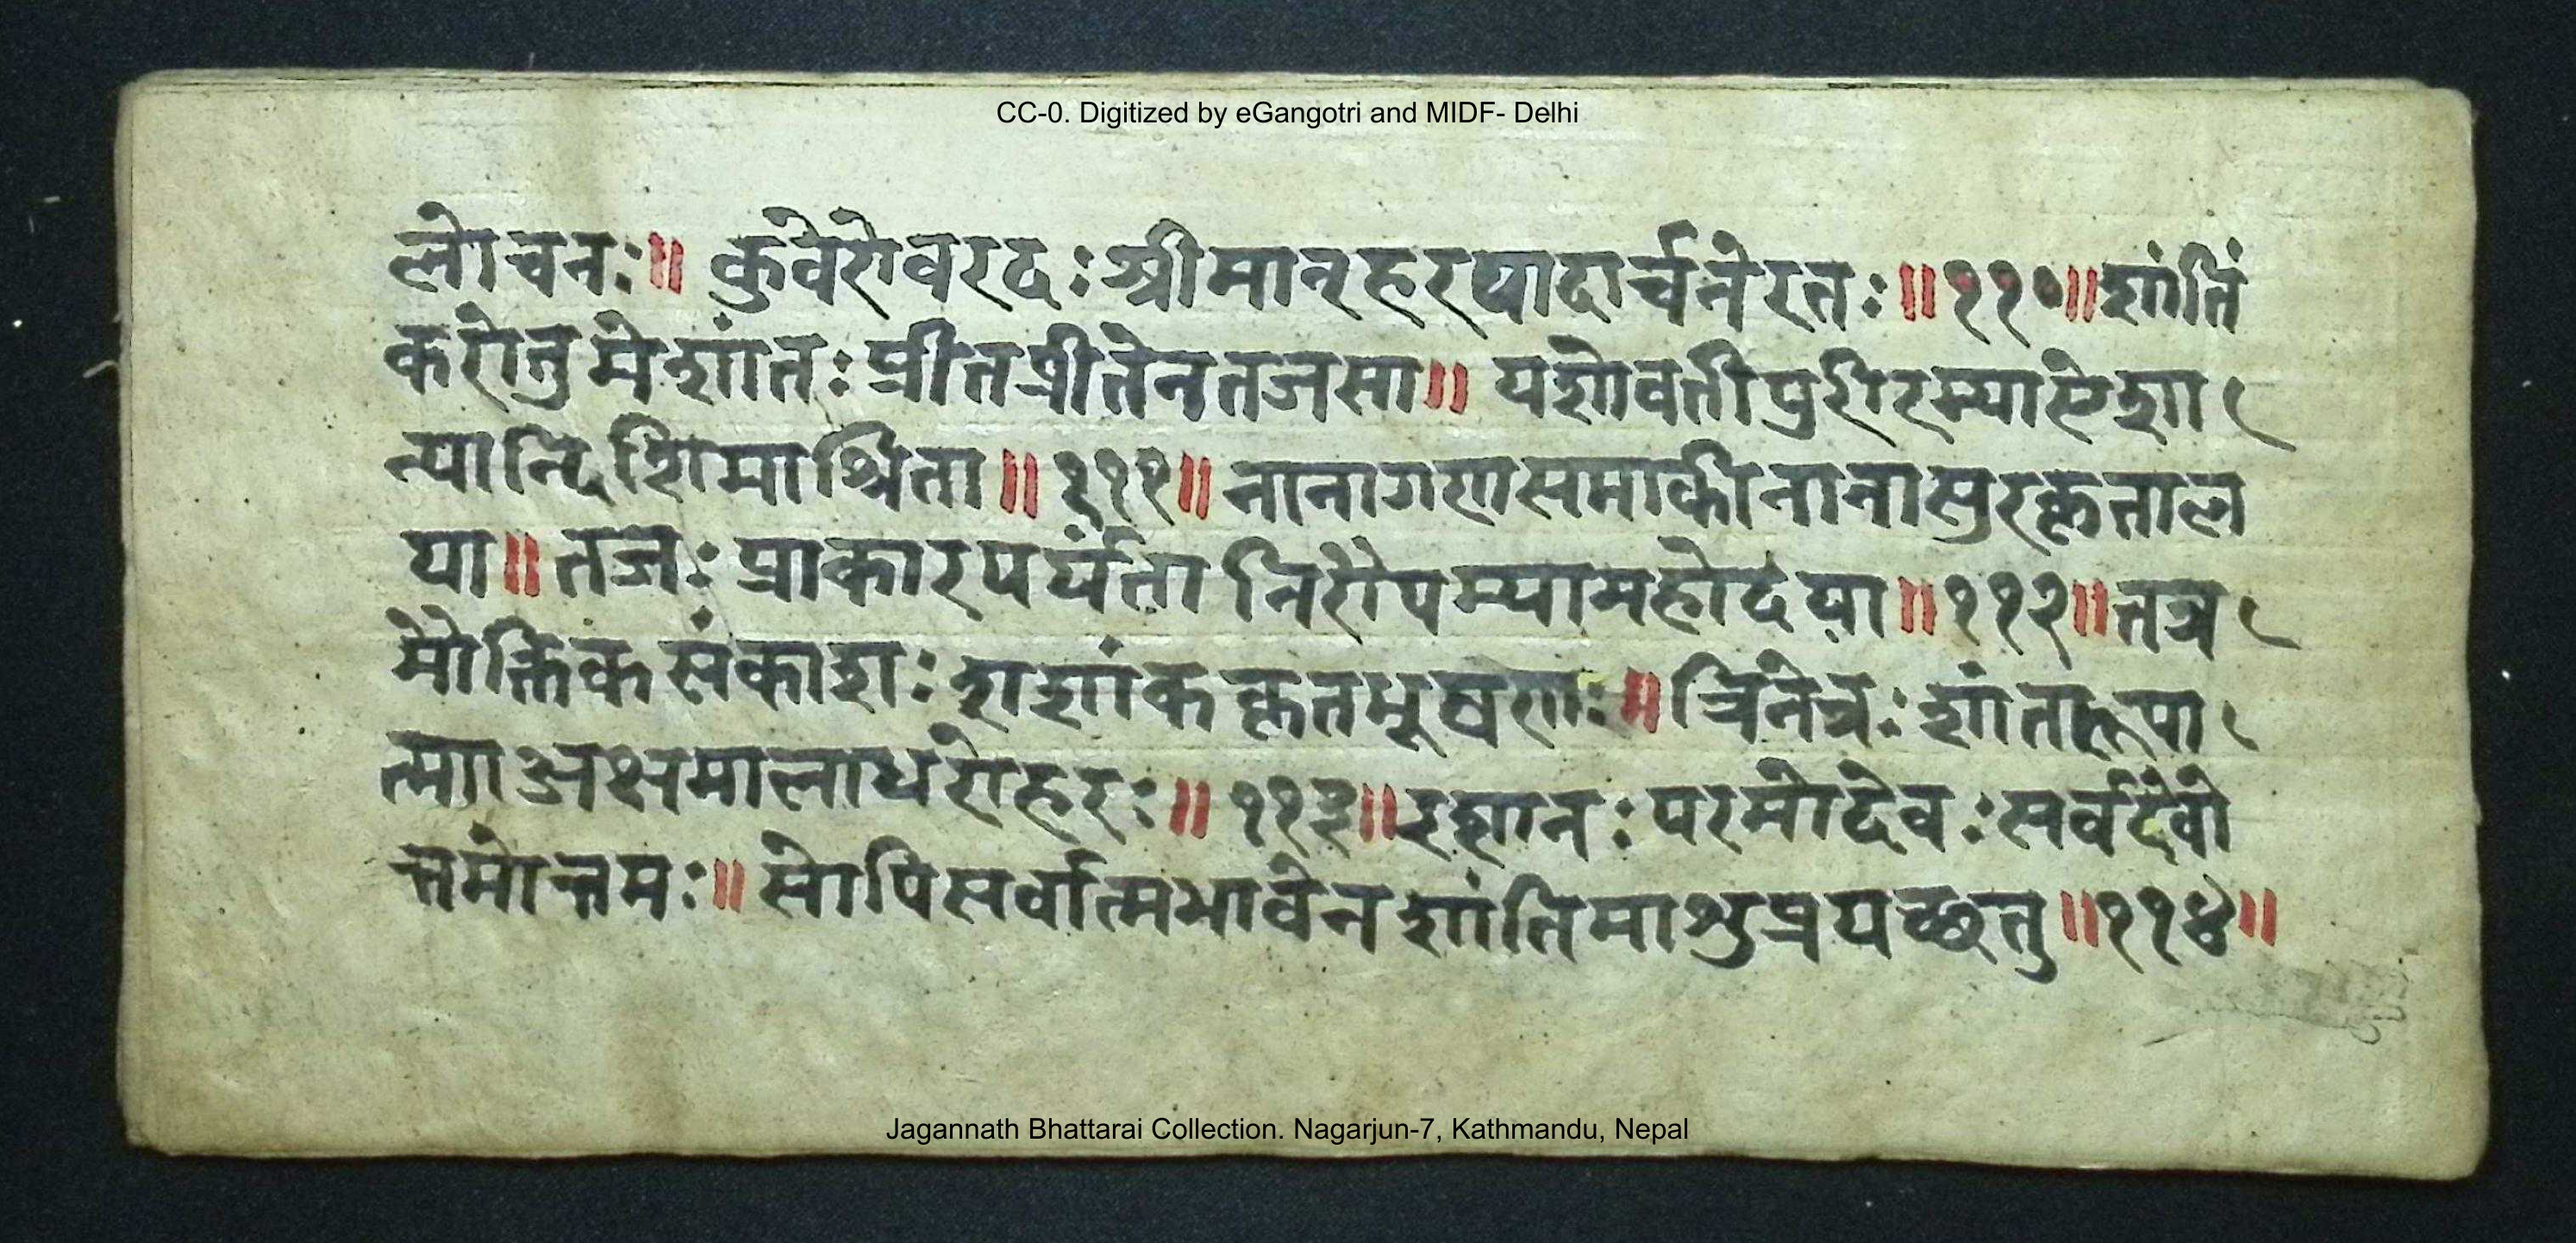 CC-0. Digitized by eGangotri and MIDF- Delhi
लोचनः॥ कुवेरोवरदः श्रीमान्हरपादार्चनेरतः॥११०॥शांतिं
करोतु मे शांतः प्रीतप्रीतेनतजसा॥ यशोवतीपुरीरम्याऐशा
न्यान्दिशिमाश्रिता॥१११॥ नानागणसमाकीनानासुरकृताल
या॥ तजः प्राकारपर्यंता निरौपम्यामहोदया॥११२॥तत्र
मौक्तिकसंकाशः शशांककृतभूषणः॥ त्रिनेत्रः शांतरूपा
त्मा अक्षमालाधरोहरः॥११३॥इशानः परमोदेवः सर्वदेवो
त्तमोत्तमः॥ सोपिसर्वात्मभावेन शांतिमाशुप्रयच्छतु॥११४॥
Jagannath Bhattarai Collection. Nagarjun-7, Kathmandu, Nepal